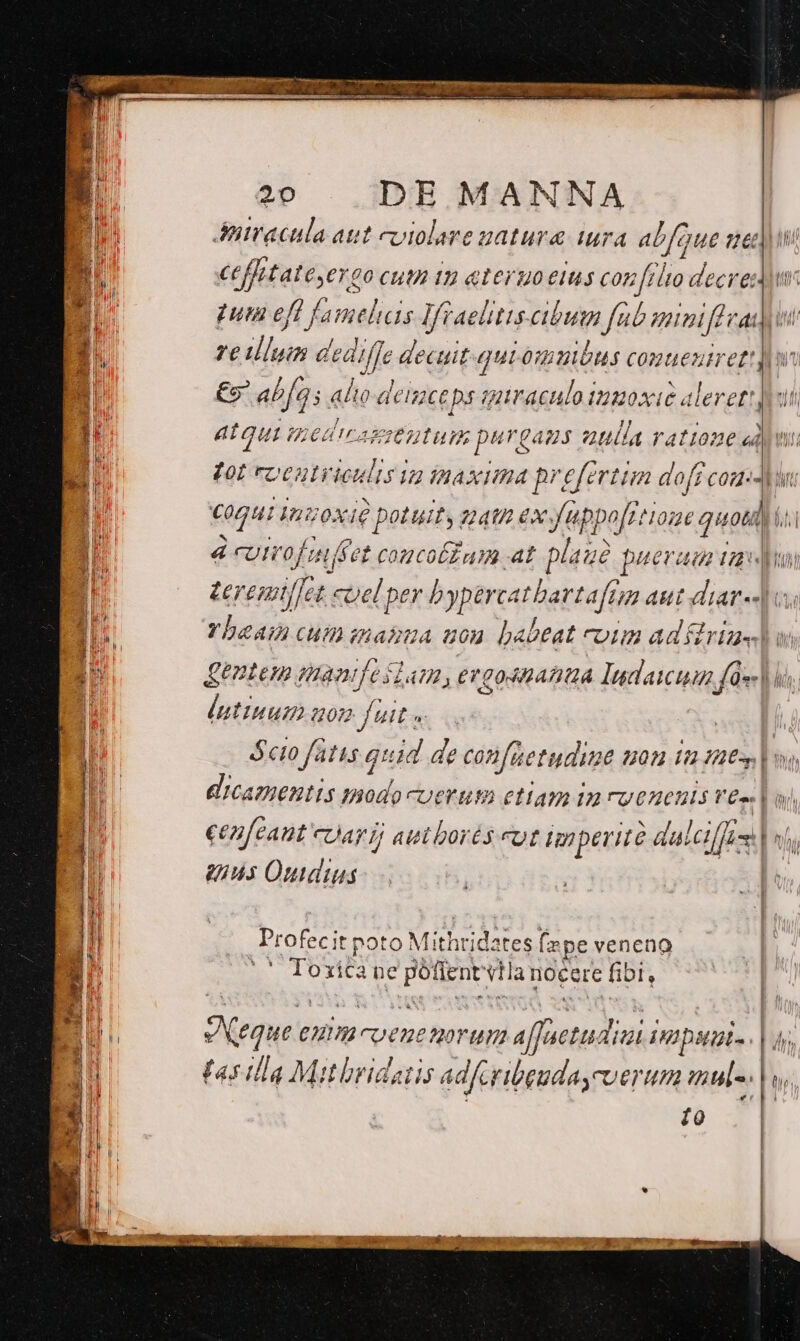 20 DE MANNA
miracula aut violare naturæ iura abſque ne-
ceſſitate, ergo cum in æterno eius conſilio decre-
tum eſt famelicis Iſraelitis cibum ſub miniſtra-
re illum dediſſe decuit qui omnibus conueniret
& abſq; alio deinceps miraculo innoxiè aleret
atqui medicamentum purgans nulla ratione
tot ventriculis in maxima preſertim doſi con-
coqui innoxiè potuit, nam ex ſuppoſitione quod
à viro fuiſſet concoctum at planè puerum in-
teremiſſet vel per hypercatharſim aut diar-
rhæam cum manna non habeat vim adſtrin-
gentem manifeſtam, ergo manna Iudaicum ſo-
lutiuum non fuit.
Scio ſatis quid de conſuetudine non in me-
dicamentis modo verum etiam in venenis re-
cenſeant varij authorés vt imperitè dulciſſi-
mus Ouidius
Profecit poto Mithridates ſæpe veneno
Toxica ne poſſent vlla nocere ſibi,
Neque enim venenorum aſſuetudini impuni-
tas illa Mithridatis adſcribenda, verum mul-
to